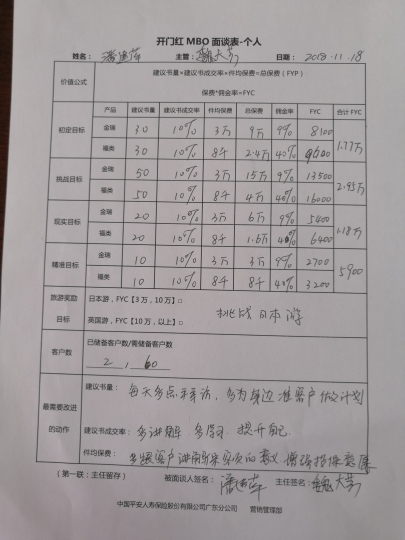 开门红 MBO 面谈表-个人
姓名： 主管：魏大芳 日期：2018.11.18
价值公式 建议书量×建议书成交率×件均保费=总保费（FYP）
保费*佣金率=FYC
产品 建议书量 建议书成交率 件均保费 总保费 佣金率 FYC 合计 FYC
初定目标 金瑞 30 10% 3万 9万 9% 8100 1.77万
福类 30 10% 8千 2.4万 40% 9600
挑战目标 金瑞 50 10% 3万 15万 9% 13500 2.95万
福类 50 10% 8千 4万 40% 16000
现实目标 金瑞 20 10% 3万 6万 9% 5400 1.18万
福类 20 10% 8千 1.6万 40% 6400
精准目标 金瑞 10 10% 3万 3万 9% 2700 5900
福类 10 10% 8千 8千 40% 3200
旅游奖励目标 日本游，FYC【3万，10万】□
英国游，FYC【10万，以上】□ 挑战日本游
客户数 已储备客户数/需储备客户数
2 , 60
最需要改进的动作 建议书量：每天多点来访，多为身边准客户做计划
建议书成交率：多讲解 多学习 提升自己.
件均保费：多跟客户讲 的意义
（第一联：主任留存） 被面谈人签名： 主任签名：魏大芳
中国平安人寿保险股份有限公司广东分公司 营销管理部